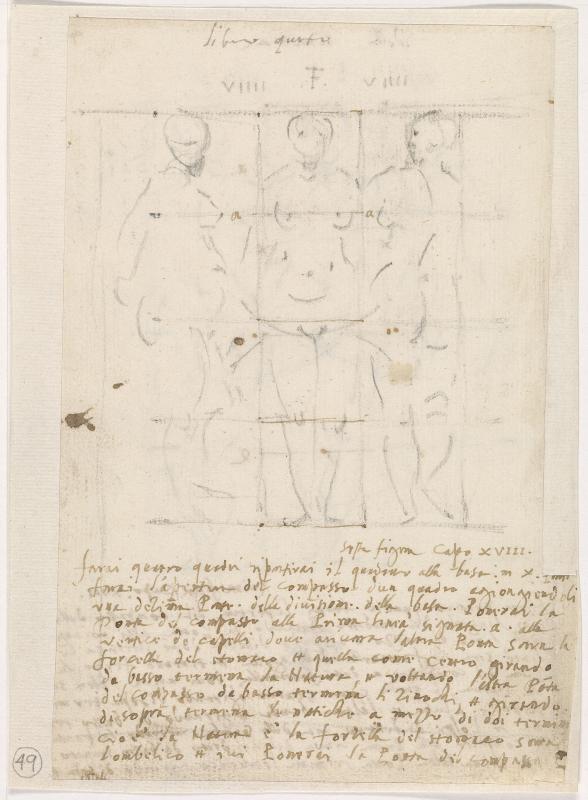 libro quarto
F.
a a
sesta figura Capo XVIII.
farai quatro quadri ripartirai il quadro alla base in X.
farai l'apertura del Compasso d'un quadro aggiongendoli
una decima Parte della divisione della base. Ponerai la
Ponta del compasso alla Prima linea signata .a. alla
vertice de capelli dove ancora l'altra Ponta sarra la
forcella del stomaco et quella come Centro girando
da basso termena la Natura, et voltando l'altra Pota
del compasso da basso termena li Zinochi, et girando
di sopra termena le natiche a mezzo di doi termini
cio è la Natura e la forcella del stomaco sarra
l'ombelico et ivi Ponerai la Ponta del compasso
49